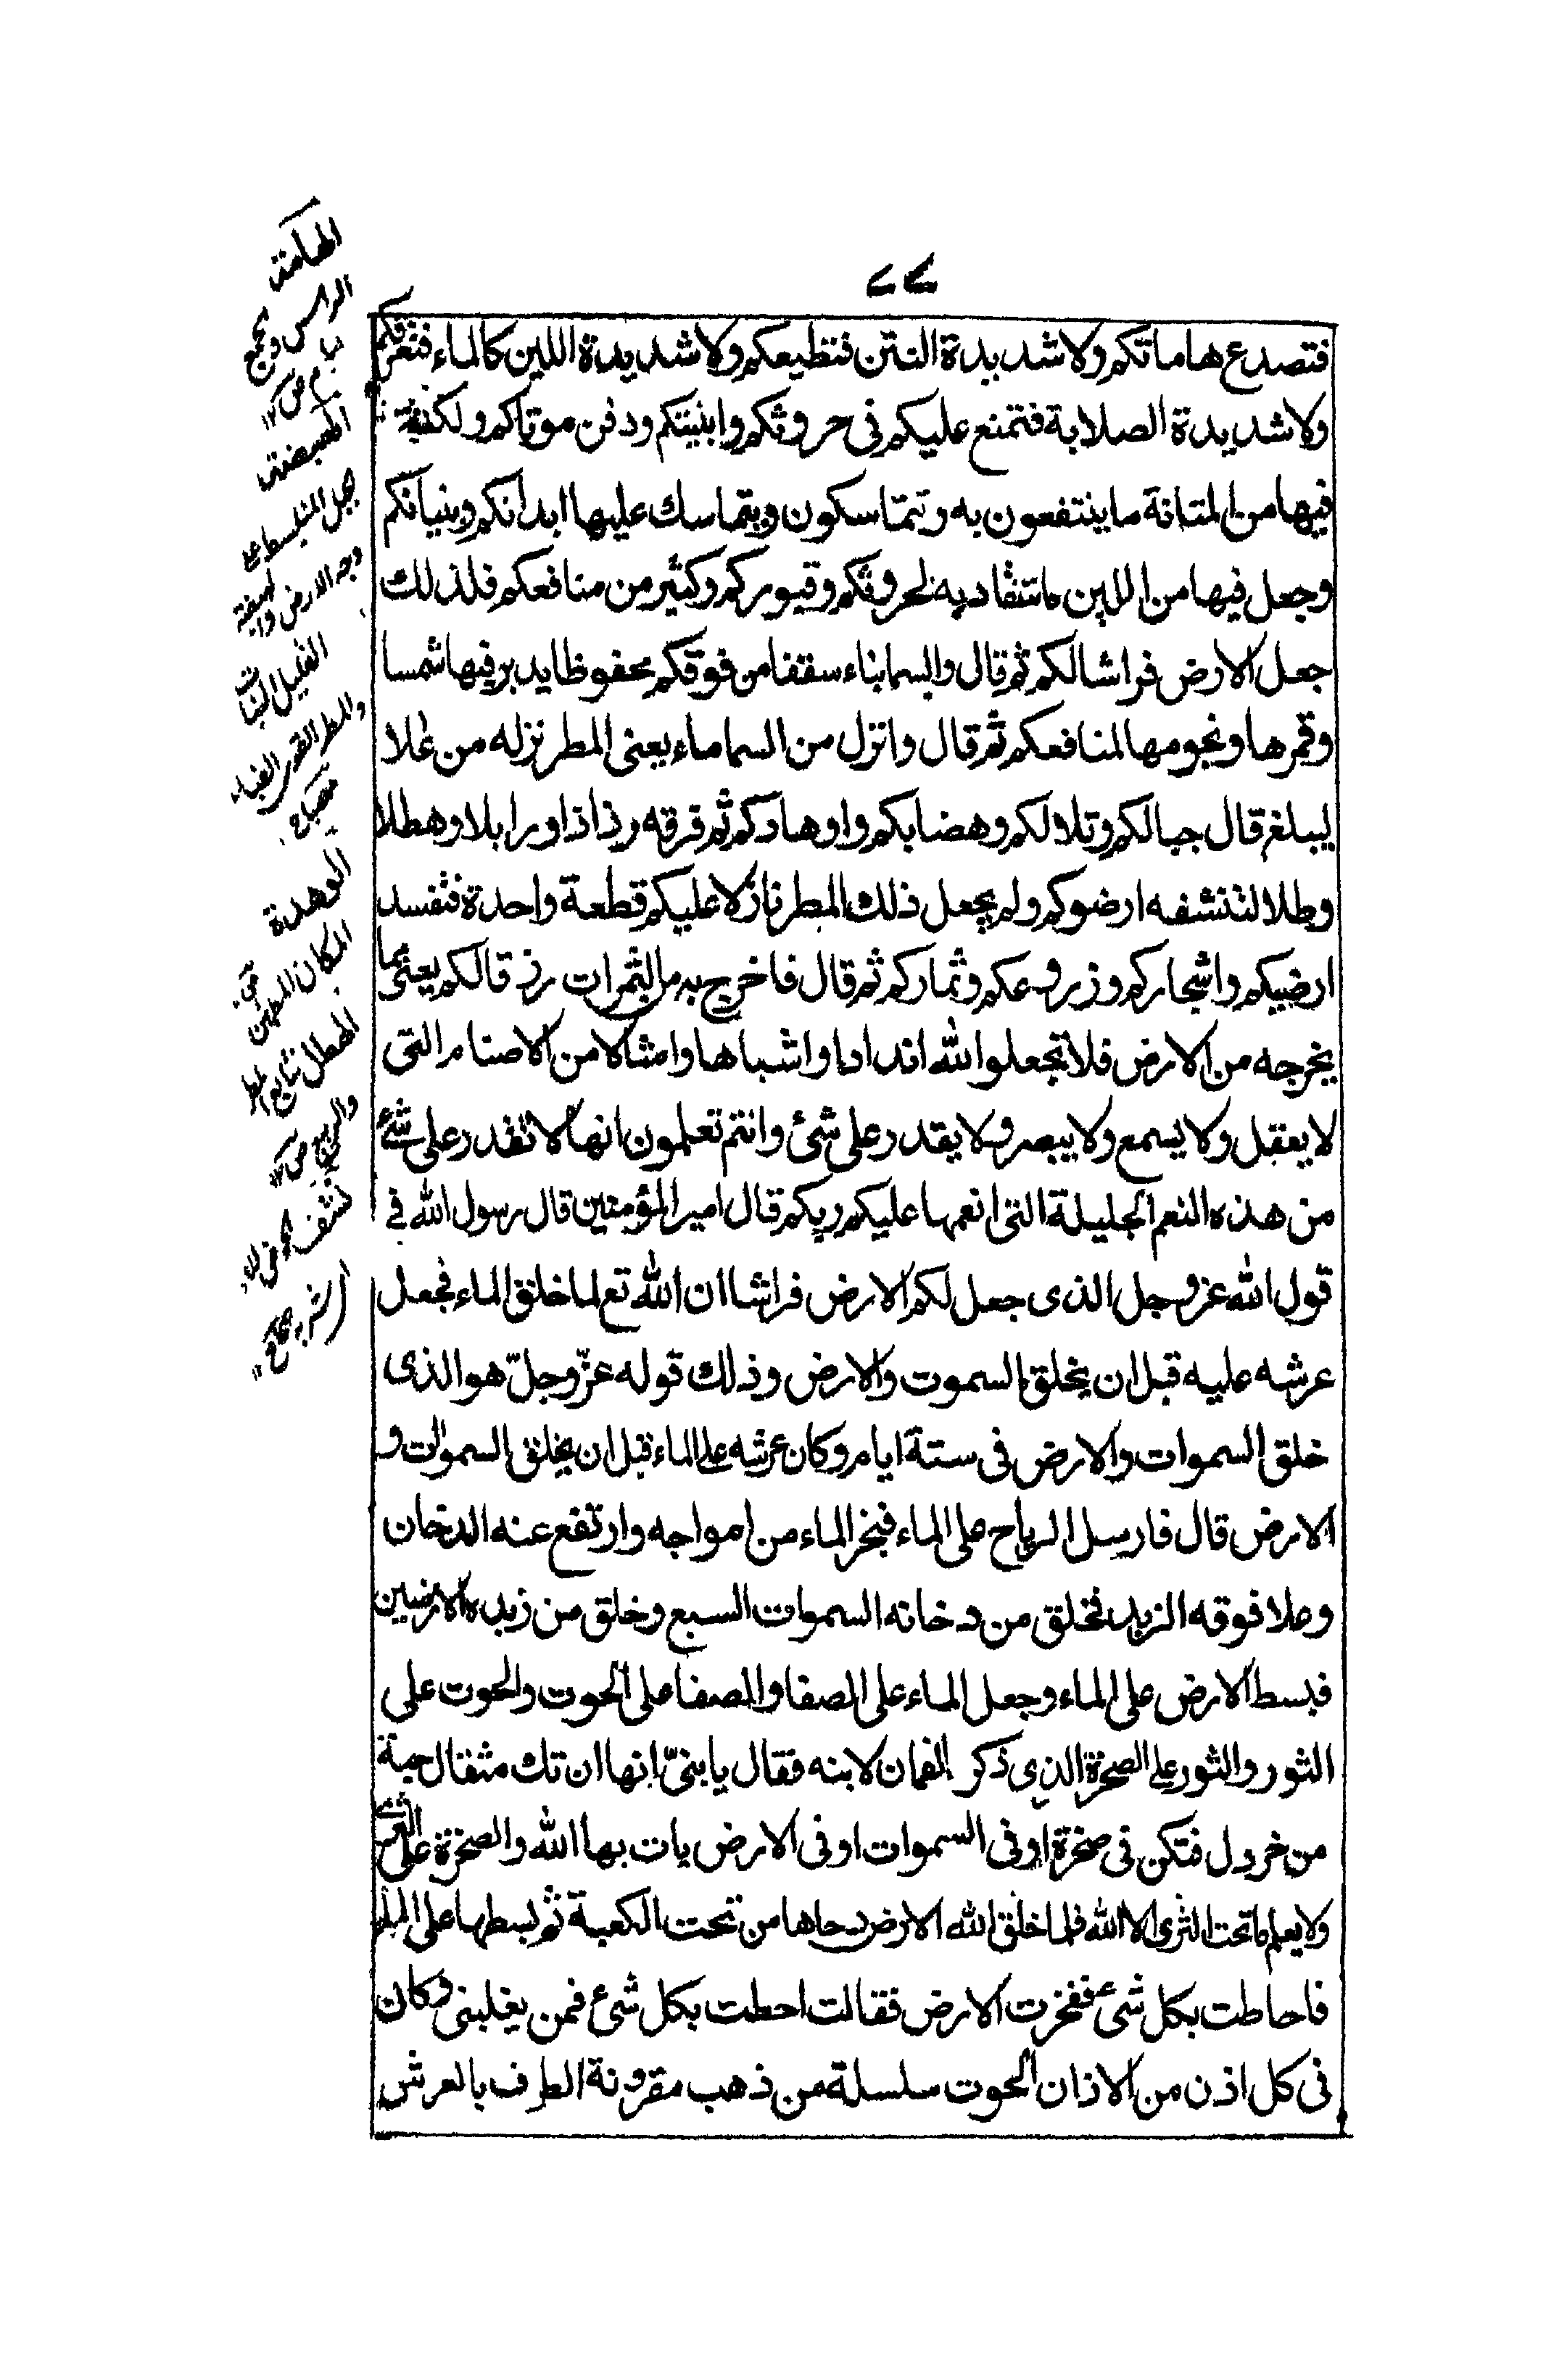 ٧٧
فتصدع هاماتكم ولا شديدة النتن فتظيعكم ولا شديدة اللين كالماء فتغرقكم
ولا شديدة الصلابة فتمنع عليكم فى حروثكم وابنيتكم ودفن موتاكم ولكنه
فيها من المتانة ما ينتفعون به وتتماسكون ويتماسك عليها ابدانكم وبنيانكم
وجعل فيها من اللين ما تنقاد به لحروثكم وقبوركم وكثير من منافعكم فلذلك
جعل الارض فراشا لكم ثم قال والسما بناء سقفا من فوقكم محفوظا يدبر فيها شمسا
وقمرها ونجومها لمنافعكم ثم قال وانزل من السما ماء يعنى المطر نزله من علا
ليبلغ قال جبالكم وتلالكم وهضابكم واوهادكم ثم فرقه رذاذا ورابلا وهطلا
وطلا لتنشفه ارضوكم ولم يجعل ذلك المطر نازلا عليكم قطعة واحدة فتفسد
ارضيكم واشجاركم وزروعكم وثماركم ثم قال فاخرج به من الثمرات رزقا لكم يعنى مما
يخرجه من الارض فلا تجعلوا لله اندادا واشباها وامثالا من الاصنام التى
لا يعقل ولا يسمع ولا يبصر ولا يقدر على شئ وانتم تعلمون انها لا تقدر على شئ
من هذه النعم الجليلة التى انعمها عليكم ربكم قال امير المؤمنين قال رسول الله فى
قول الله عز وجل الذى جعل لكم الارض فراشا ان الله تع لما خلق الماء فجعل
عرشه عليه قبل ان يخلق السموت والارض وذلك قوله عزّ وجلّ هو الذى
خلق السموات والارض فى ستة ايام وكان عرشه على الماء قبل ان يخلق السموات و
الارض قال فارسل الرياح على الماء فبخر الماء من امواجه وارتفع عنه الدخان
وعلا فوقه الزبد فخلق من دخانه السموات السبع وخلق من زبده الارضين
فبسط الارض على الماء وجعل الماء على الصفا والصفا على الحوت والحوت على
الثور والثور على الصخرة الذى ذكر لقمان لابنه فقال يا بنىّ انها ان تك مثقال حبة
من خردل فتكن فى صخرة او فى السموات او فى الارض يات بها الله والصخرة على الثرى
ولا يعلم ما تحت الثرى الا الله فلما خلق الله الارض دحاها من تحت الكعبة ثم بسطها على الماء
فاحاطت بكل شئ ففخرت الارض فقالت احطت بكل شئ فمن يغلبنى وكان
فى كل اذن من الاذان الحوت سلسلة من ذهب مقرونة الطرف بالعرش
الهامة
الراس والجمع
هام
جبل المنبسط على
وجه الارض
القليل النبات
والمطر
مصباح
الوهدة
المكان المطمئن
الهطل تتابع المطر
نشف